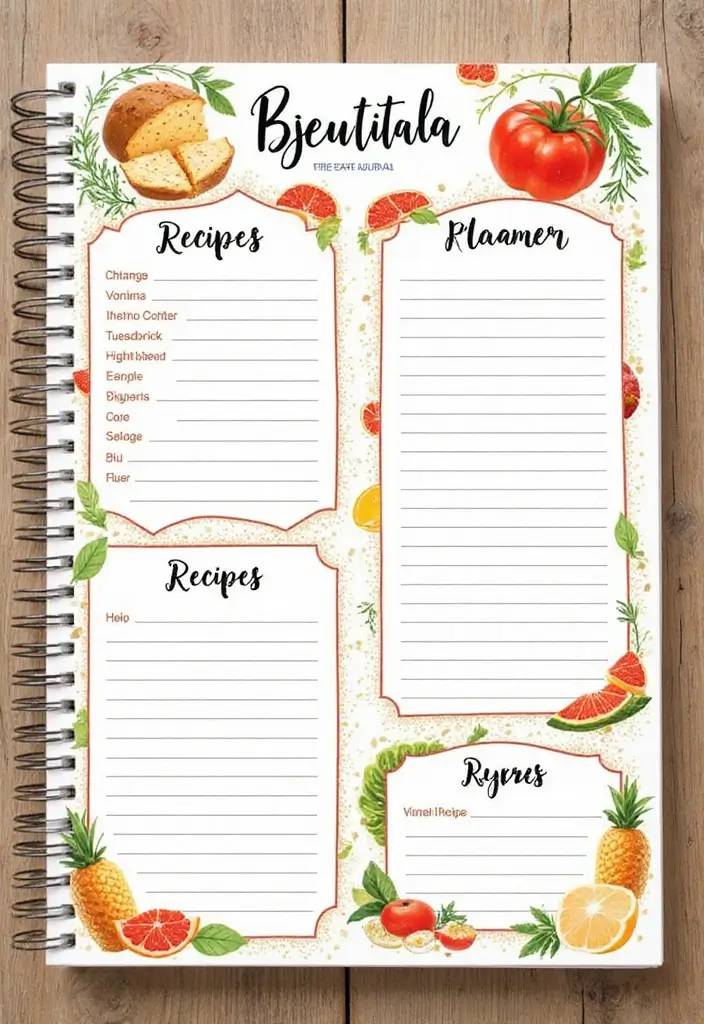 Bjeutitala
Recipes
Chtange
Vonima
Inemo Comter
Tuesdbrick
Hight bleed
Eanple
Digperis
Core
Selage
Blu
Fluer
Plaamer
Recipes
Help
Rypres
Vimeh Recipe